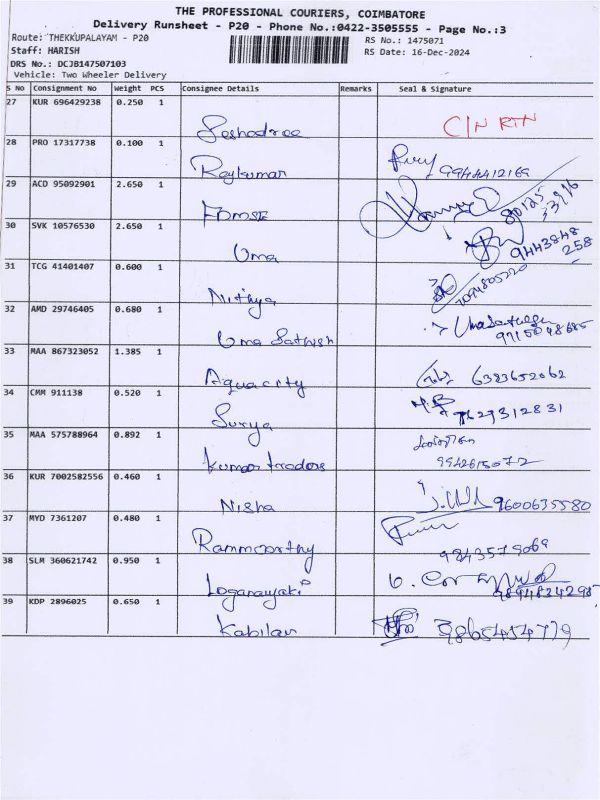 THE PROFESSIONAL COURIERS, COIMBATORE
Delivery Runsheet - P20 - Phone No.:0422-3505555 - Page No.:3
Route: THEKKUPALAYAM - P20
RS No.: 1475071
Staff: HARISH
RS Date: 16-Dec-2024
DRS No.: DCJB147507103
Vehicle: Two Wheeler Delivery
S No Consignment No Weight PCS Consignee Details Remarks Seal & Signature
27 KUR 696429238 0.250 1
Seshadree C/N RTN
28 PRO 17317738 0.100 1
Raykumar 9944412169
29 ACD 95092901 2.650 1
30 SVK 10576530 2.650 1
Uma 9443848
258
31 TCG 41401407 0.600 1
Nithya 7094805220
32 AMD 29746405 0.680 1
Uma Sathish
33 MAA 867323052 1.385 1
Aquacity 6383652062
34 CMM 911138 0.520 1
Surya 7629312831
35 MAA 575788964 0.892 1
Kumar traders 9942615072
36 KUR 7002582556 0.460 1
Nisha 9600635580
37 MYD 7361207 0.480 1
Rammoorthy 9843579069
38 SLM 360621742 0.950 1
Loganayaki
39 KDP 2896025 0.650 1
Kabilan 9865454779